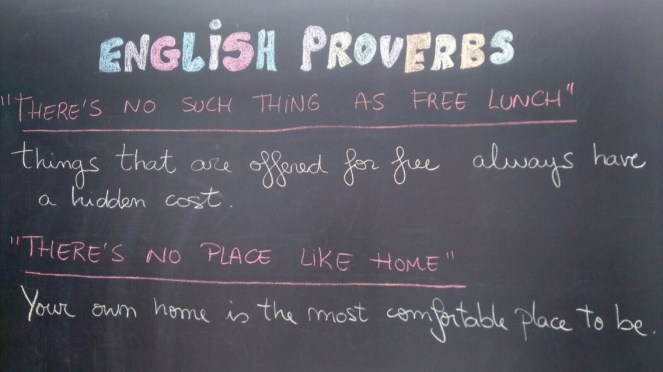 ENGLISH PROVERBS
"THERE'S NO SUCH THING AS FREE LUNCH"
things that are offered for free always have
a hidden cost.
"THERE'S NO PLACE LIKE HOME"
Your own home is the most comfortable place to be.